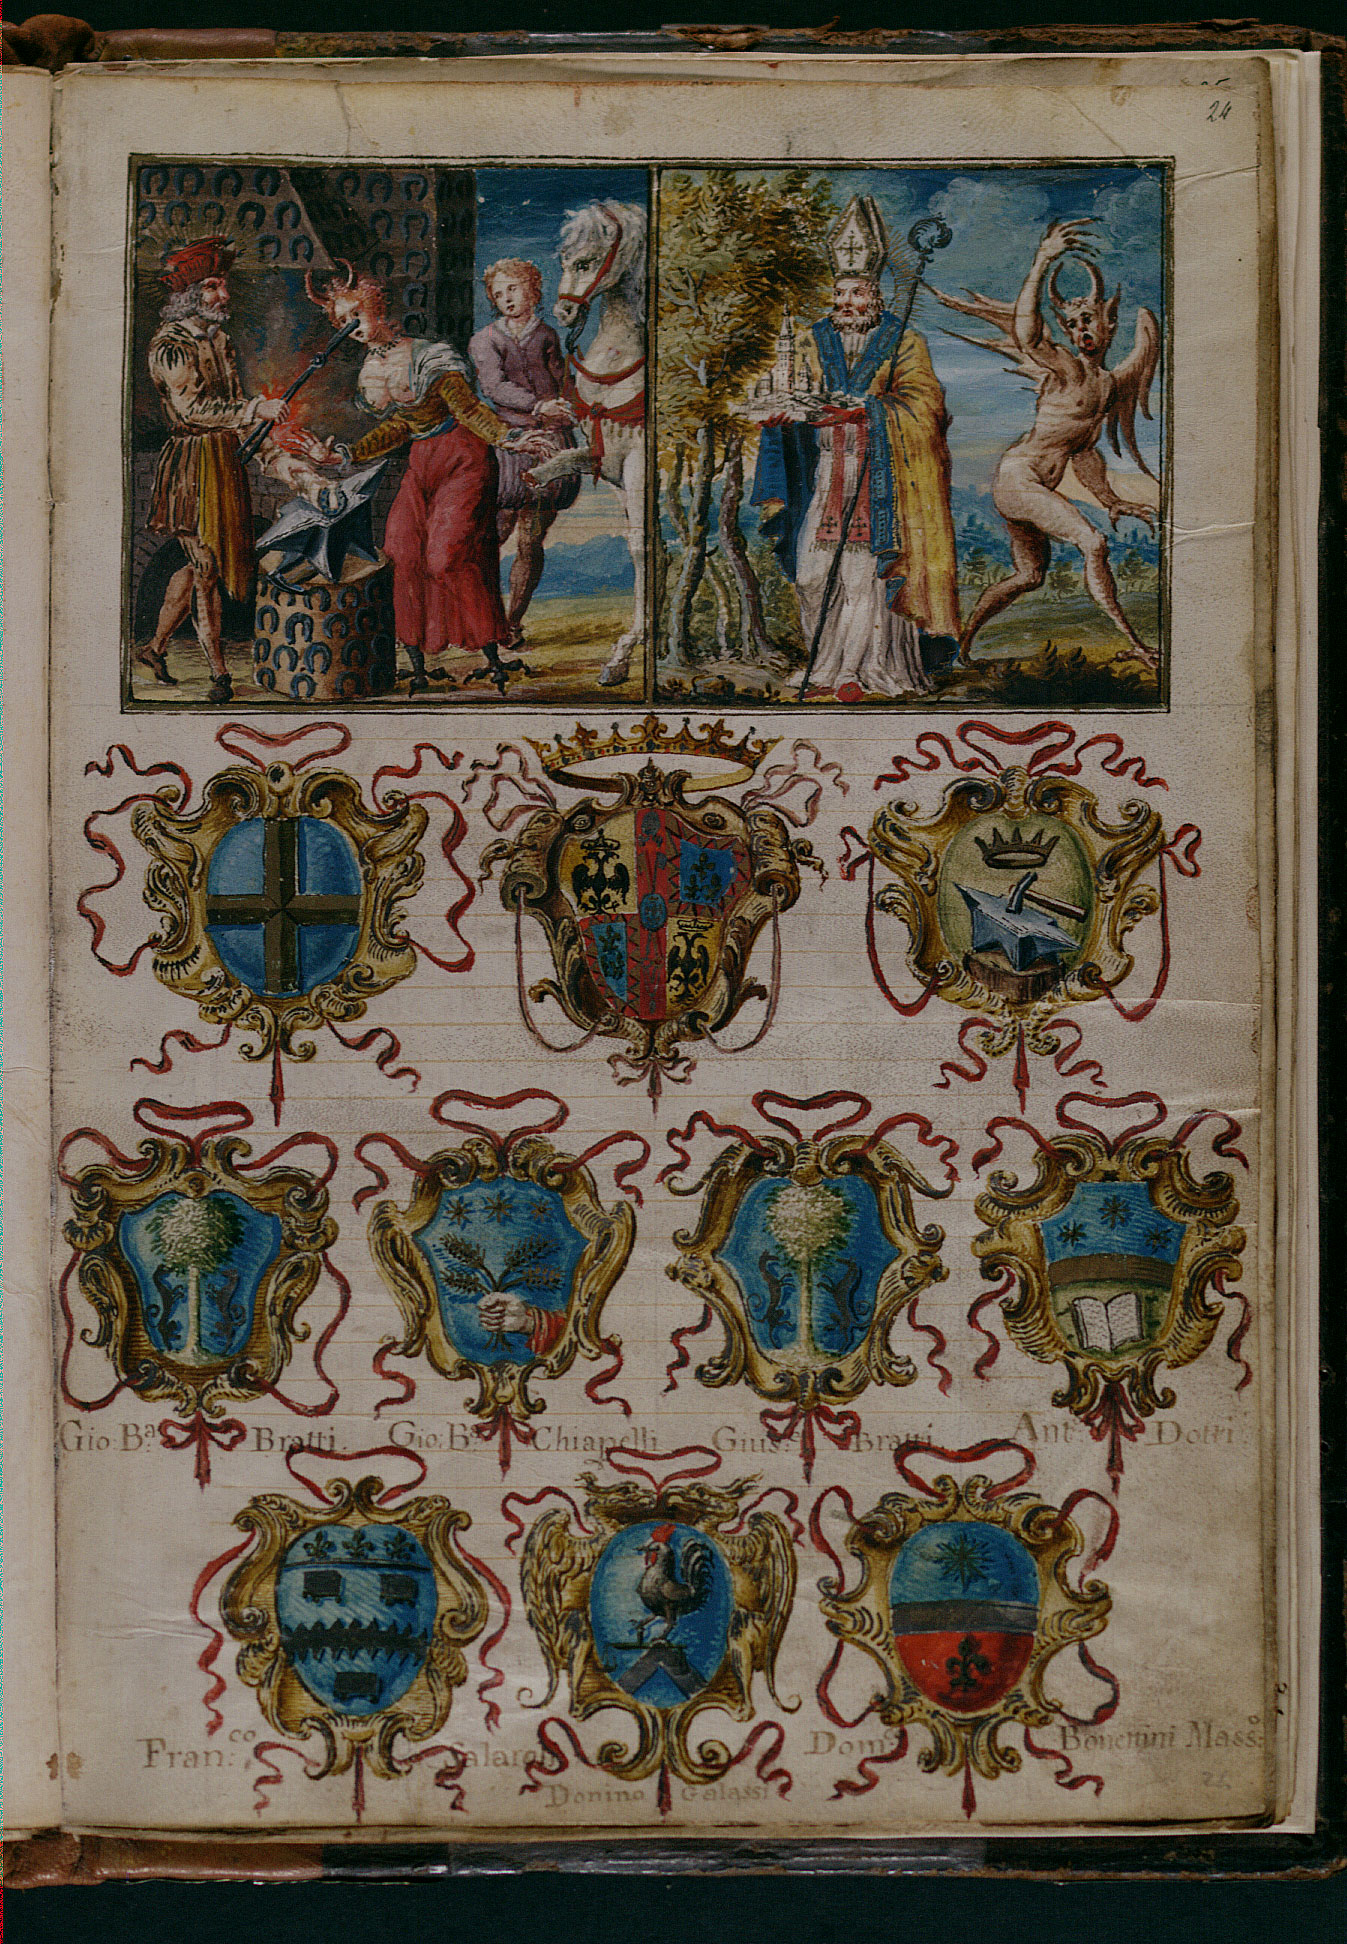 24
Gio: Bª. Bratti. Gio: Bª. Chiapelli Gius:ᵉ Bratti Ant: Dotti
Fran:ᶜᵒ Salaroli Dom:ᶜᵒ Bonemini Mass:ᵒ
Donino Galassi